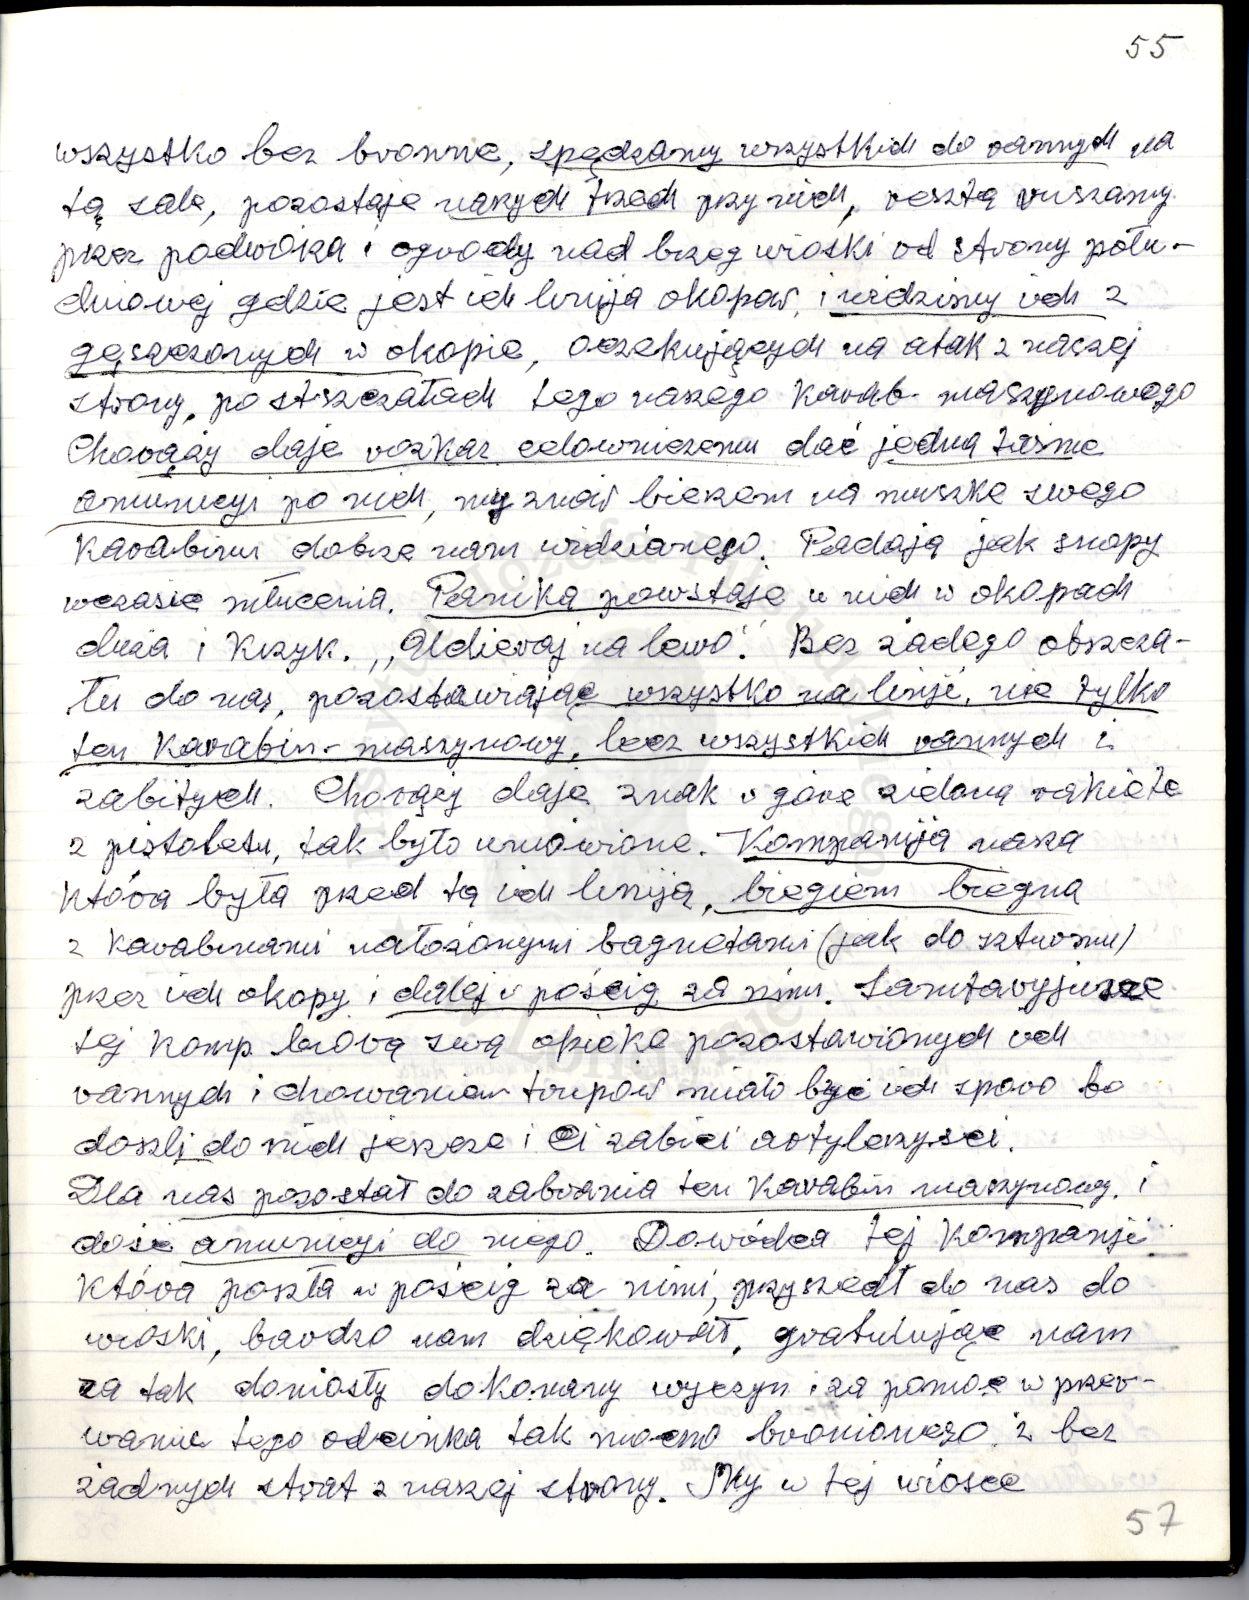 55
wszystko bez bronne, spędzamy wszystkich do rannych na
tą sale, pozostaje naszych trzech przy nich, resztą ruszamy
przez podwórza i ogrody nad brzeg wioski od strony połu-
dniowej gdzie jest ich linija okopów, i widzimy ich z
gęszczonych w okopie, oczekujących na atak z naszej
strony, po strzczałach tego naszego karab. maszynowego
Chorąży daje rozkaz celowniczemu dać jedną taśme
amunicyi po nich, my znów bierzem na muszke swego
karabinu dobrze nam widzianego. Padają jak snopy
wczasie młucenia. Panika powstaje u nich w okopach
duża i krzyk. ,,Udieraj na lewo". Bez żadego obszcza-
łu do nas, pozostawiając wszystko na linji, nie tylko
ten karabin-maszynowy, lecz wszystkich rannych i
zabitych. Chorąży daje znak w górę zieloną rakiete
z pistoletu, tak było umówione. Kompanija nasza
która była przed tą ich liniją, biegiem biegną
z karabinami nałożonymi bagnetami (jak do szturmu)
przez ich okopy i dalej w pościg za nimi. Sanitaryjusze
tej komp biorą swą opieke pozostawionych ich
rannych i chowaniem trupów miało być ich sporo bo
doszli do nich jeszcze i ci zabici artylerzyści.
Dla nas pozostał do zabrania ten karabin maszynowy. i
dość amunicyi do niego. Dowódca tej kompanji
która poszła w pościg za nimi, przyszedł do nas do
wioski, bardzo nam dziękował, gratulując nam
za tak doniosły dokonany wyczyn i za pomoc w przer-
waniu tego odcinka tak mocno bronionego i bez
żadnych strat z naszej strony. My w tej wiosce
57